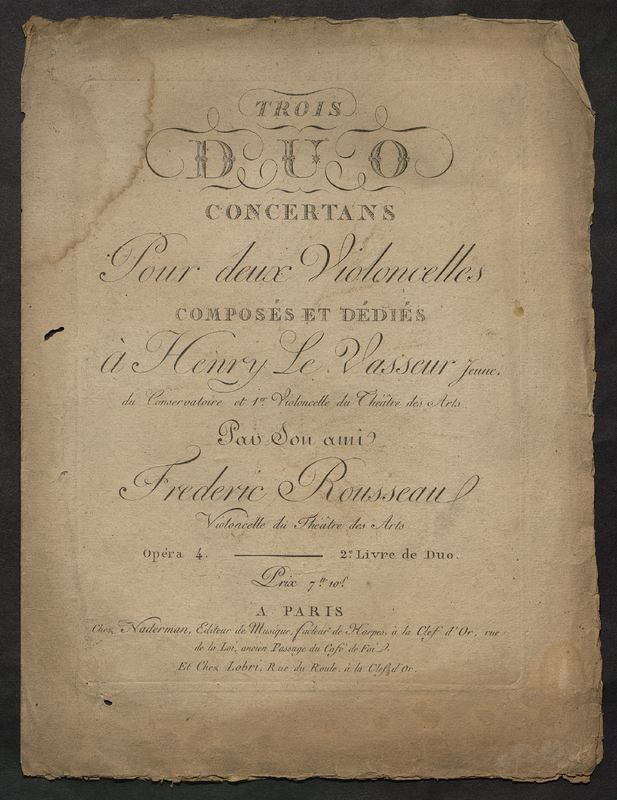 TROIS
DUO
CONCERTANS
Pour deux Violoncelles
COMPOSÉS ET DÉDIÉS
à Henry Le Vasseur Jeune.
du Conservatoire et 1er Violoncelle du Théâtre des Arts
Par Son ami
Frederic Rousseau
Violoncelle du Théâtre des Arts
Opéra 4. 2e Livre de Duo.
Prix 7tt 10s
A PARIS
Chez Naderman, Editeur de Musique, facteur de Harpes, à la Clef d'Or, rue
de la Loi, ancien Passage du Café de Foi
Et Chez Lobri, Rue du Roule, à la Clef d'Or.